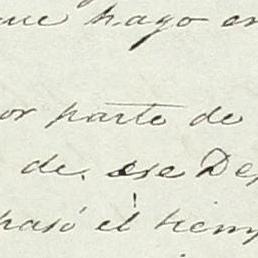 que hago en
or parte de
de. ese De
pasó el tiemp